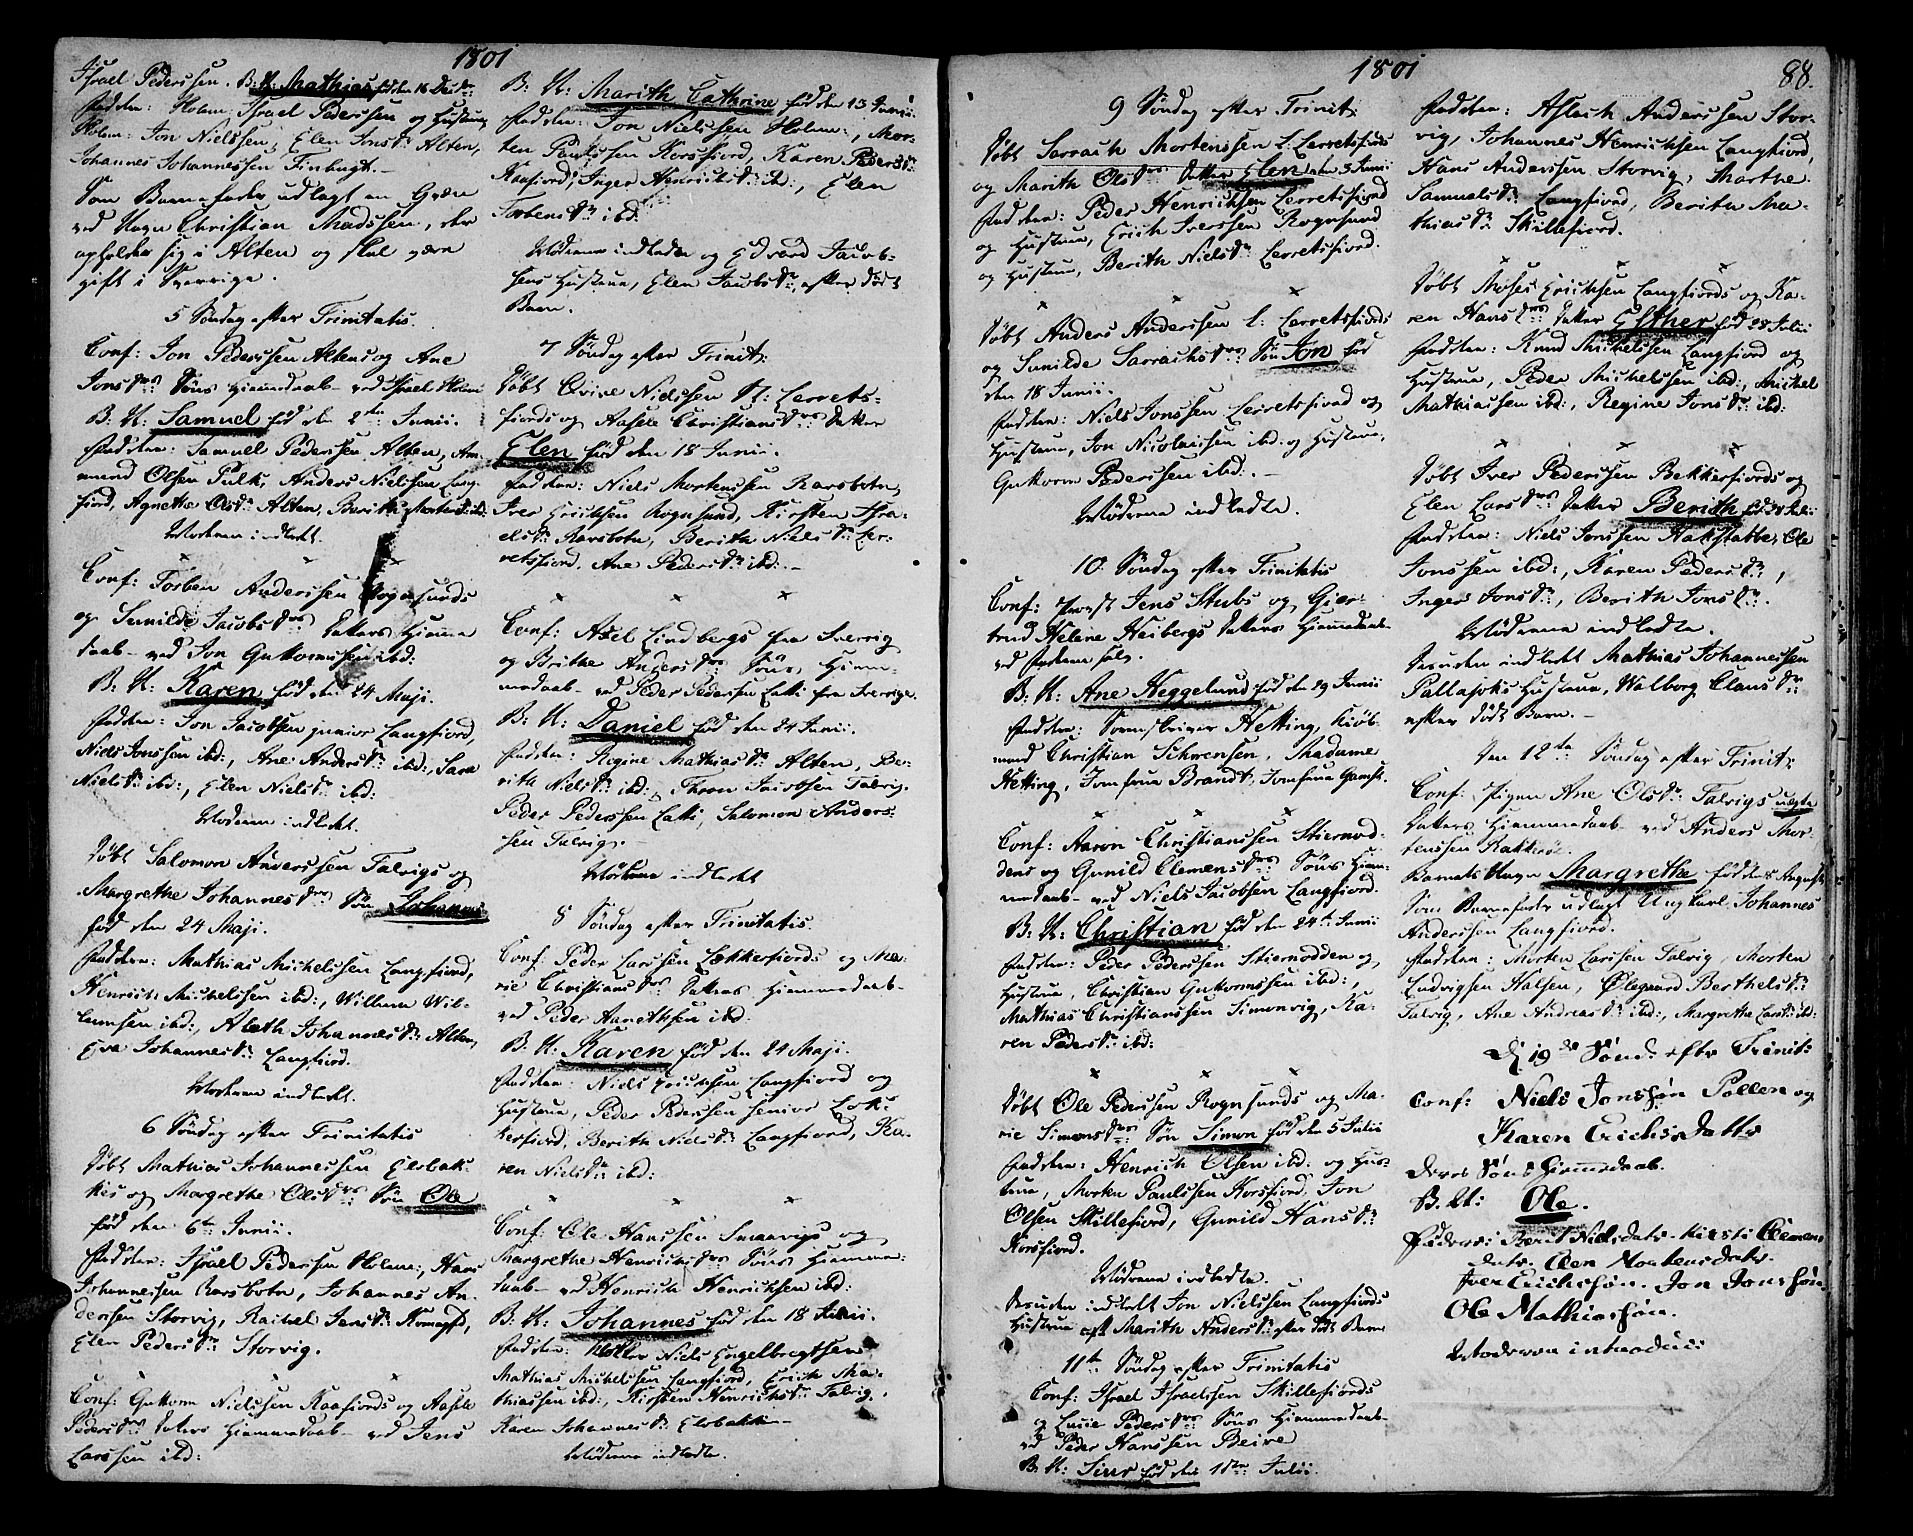 1801
Israel Pederssen. B: N: Mathias fød den 16 Decbr
Faddere: Holm: Israel Pederssen og Hustrue
Holm: Jon Nielssen, Elen Jonsdr Alten,
Johannes Johannessen Finbugt.
Som Barnefader udlagt en Qvæn
ved Navn Christian Madssen, der
opholder sig i Alten og skal være
gift i Sverrige.
5 Søndag efter Trinitatis.
Conf: Jon Pederssen Altens og Ane
Jonsdrs Søns Hiemmedaab ved Israel Holm
B: N: Samuel fød den 2den Junii.
Faddere: Samuel Pederssen Alten, Am-
mund Olsen Pulk, Anders Nielssen Lang-
fiord, Agnethe Olsdr Alten, Berithe Mortensdr ibd:
Moderen indledt.
Conf: Torben Anderssen Rognsunds
og Gunilde Jacobsdrs Datters Hiemme
daab ved Jon Guttormssen ibd:
B: N: Karen fød den 24 Maji.
Faddere: Jon Jacobsen junior Langfiord,
Niels Jonssen ibd:, Ane Andersdr ibd:, Sara
Nielsdr ibd:, Elen Nielsdr ibd:
Moderen indledt.
Døbt Salomon Anderssen Talvigs og
Margrethe Johannesdrs Søn Johannes
fød den 24 Maji.
Faddere: Mathias Michelssen Langfiord,
Henrich Michelssen ibd:, Willum Wil-
lumsen ibd:, Aleth Johannesdr Alten,
Eva Johannesdr Langfiord.
Moderen indledt.
6 Søndag efter Trinitatis
Døbt Mathias Johannessen Elvbak-
kes og Margrethe Olsdrs Søn Ole
fød den 6te Junii.
Faddere: Israel Pederssen Holm:, Hans
Johannessen Rarsbotn, Johannes An-
derssen Storvig, Rachel Jensdr Komagfd,
Elen Pedersdr Storvig.
Conf: Guttorm Nielssen Kaafiords og Aasele
Pedersdrs Datters Hiemmedaab ved Jens
Larssen ibd:
B: N: Marith Cathrine fød den 13 Junii.
Faddere: Jon Nielssen Holm:, Mor-
ten Paulssen Korsfiord, Karen Pedersdr
Kaafiord, Inger Henrichsdr ibd:, Elen
Torbensdr ibd:
Mødrene indledede og Edverd Jacob-
sens Hustrue, Elen Jacobsdr, efter dødt
Barn.
7 Søndag efter Trinit:
Døbt Elvine Nielssen N: Lerrets-
fiords og Aasele Christiansdrs Datter
Elen fød den 18 Junii.
Faddere: Niels Mortenssen Rarsbotn,
Iver Erichsen Rognsund, Kirsten Isra-
elsdr Rarsbotn, Berith Nielsdr Ler-
retsfiord. Ane Pedersdr ibd:
Conf: Axel Lindbergs fra Sverrig
og Brithe Andersdrs Søns Hiem-
medaab ved Peder Pedersen Latti fra Sverrige.
B: N: Daniel fød den 24 Junii.
Faddere: Regine Mathiasdr Alten, Be-
rith Nielsdr ibd:, Thron Jacobsen Talvig.
Peder Pederssen Latti, Salomon Anders-
sen Talvig.
Moderen indledt
8 Søndag efter Trinitatis.
Conf: Peder Larssen Lekkerfiords og Ma-
rie Christiansdrs Datters Hiemmedaab
ved Peder Hanrikssen ibd:
B: N: Karen fød den 24 Maji.
Faddere: Niels Erichsen Langfiord og
Hustrue, Peder Pederssen senior Lek-
kerfiord, Berith Nielsdr Langfiord, Ka-
ren Nielsdr ibd:
Conf: Ole Hanssen Smaavigs og
Margrethe Henrichsdrs Søns Hiemme-
daab ved Henrich Henrichsen ibd:
B: N: Johannes fød den 18 Junii.
Faddere: Niels Engelbregtsen
Mathias Michelssen Langfiord, Erich Ma-
thiassen ibd:, Kirsten Henrichsdr Talvig.
Karen Johannesdr Elvbakken
Mødrene indledte.
1801
88.
9 Søndag efter Trinit:
Døbt Sarrach Mortenssen L: Lerretsfiords
og Marith Olsdrs Datter Elen den 3 Junii
Faddere: Peder Henrichsen Lerretsfiord
og Hustrue, Erich Iverssen Rognsund
og Hustrue, Berith Nielsdr Lerretsfiord.
Døbt Anders Anderssen L: Lerretsfiords
og Gunilde Sarrachsdrs Søn Jon fød
den 18 Junii.
Faddere: Niels Jonssen Lerretsfiord og
Hustrue, Jon Nicolaissen ibd: og Hustrue,
Guttorm Pederssen ibd:
Mødrene indledte.
10: Søndag efter Trinitatis
Conf: Provst Jens Stubs og Gier-
trud Helene Heibergs Datters Hiemmedaab
ved Faderen selv.
B: N: Ane Heggelund fød den 29 Junii
Faddere: Sorenskriver Hetting, Kiøb-
mand Christian Sehrensen, Madame
Hetting, Jomfrue Brandt, Jomfrue Gamst.
Conf: Aaron Christianssen Stiernod-
dens og Gunild Clemensdrs Søns Hiem-
medaab ved Niels Jacobsen Langfiord.
B: N: Christian fød den 24de Junii
Faddere: Peder Pederssen Stiernodden og
Hustrue, Christian Guttormssen ibd:,
Mathias Christianssen Simonvig, Ka-
ren Pedersdr ibd:
Døbt Ole Pederssen Rognsunds og Ma-
rie Simonsdrs Søn Simon fød den 5 Julii
Faddere: Henrich Olsen ibd: og Hus-
true, Morten Paulssen Korsfiord, Jon
Olsen Skillefiord, Gunild Hansdr
Korsfiord.
Mødrene indledte.
Desuden indledt Jon Nielssen Langfiords
Hustrue Marith Andersdr efter dødt Barn
11te Søndag efter Trinitatis
Conf: Israel Israelssen Skillefiords
og Lucie Pedersdrs Søns Hiemmedaab
ved Peder Hanssen Beive
B: N: Siver fød den 1ste Julii.
Faddere: Aslach Anderssen Stor-
vig, Johannes Henrichsen Langfiord,
Hans Anderssen Storvig, Marthe
Samuelsdr Langfiord, Berith Ma-
thiasdr Skillefiord.
Døbt Moses Erichsen Langfiords og Ka-
ren Hansdrs Datter Esther fød 28 Julii
Faddere: Knud Michelssen Langfiord og
Hustrue, Peder Michelssen ibd:, Michel
Mathiassen ibd:, Regine Jonsdr ibd:
Døbt Iver Pederssen Bekkerfiords og
Elen Larsdrs Datter Berith fød Julii
Faddere: Niels Jonssen Hakstabbe, Ole
Jonssen ibd:, Karen Pedersdr,
Inger Jonsdr, Berith Jonsdr.
Mødrene indledte.
Desuden indledt Mathias Johannessen
Pallajoks Hustrue, Walborg Clausdr
efter dødt Barn.
Den 12te Søndag efter Trinit:
Conf: Pigen Ane Olsdr Talvigs uægte
Datters Hiemmedaab ved Anders Mor-
tenssen Rakkenæs.
Barnets Navn Margrethe fød den August
Som Barnefader udlagt Ungkarl Johannes
Anderssen Langfiord.
Faddere: Morten Larssen Talvig, Morten
Ludvigsen Halsen, Ølegaard Berthelsdr
Talvig, Ane Andreasdr ibd:, Margrethe Larsdr ibd:
D 19de Sønd: efter Trinit:
Conf: Niels Jonsøn Pollen og
Karen Erichs Datter
deres Søns Hiemedaab.
B. N: Ole.
Faderes: Berit Nielsdater Kirsti Clemens
dater Elen Mortensdater
Iver Erichsøn. Jon Jonsøn
Ole Mathiassøn.
Moderen introduci: